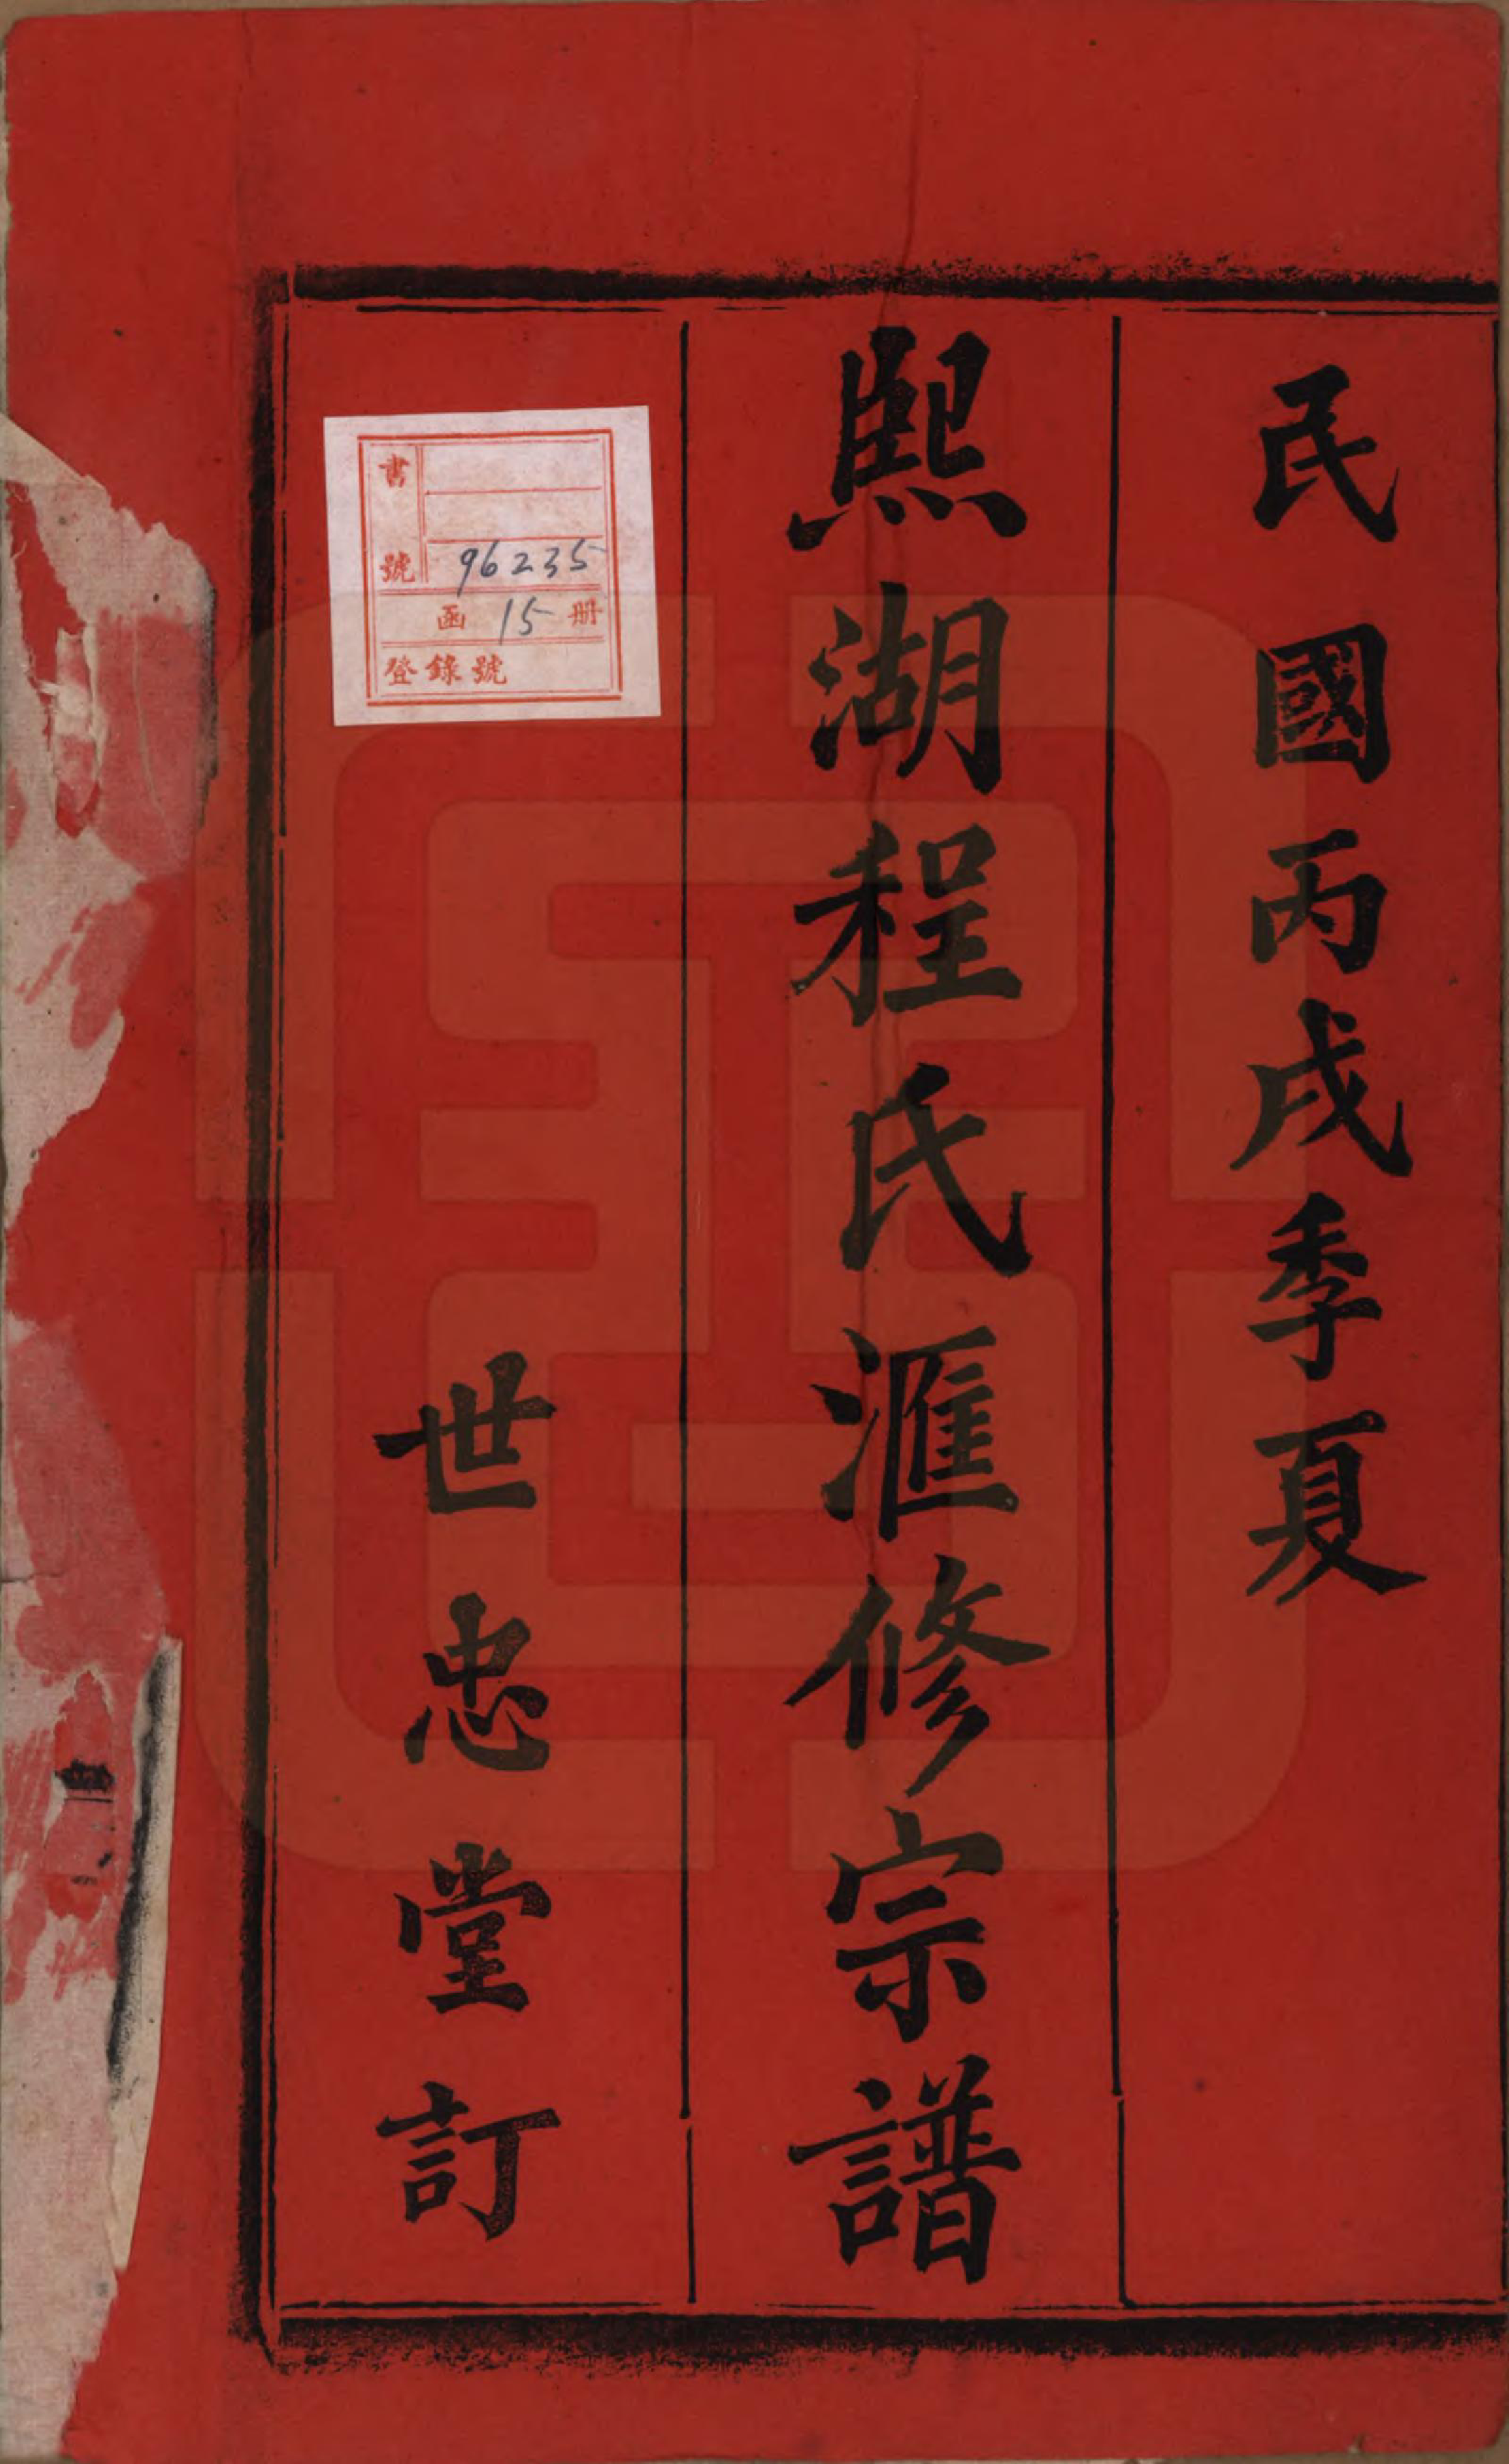 民國丙戌季夏
熙湖程氏滙修宗譜
世忠堂訂
書號 96235
函 15 册
登錄號